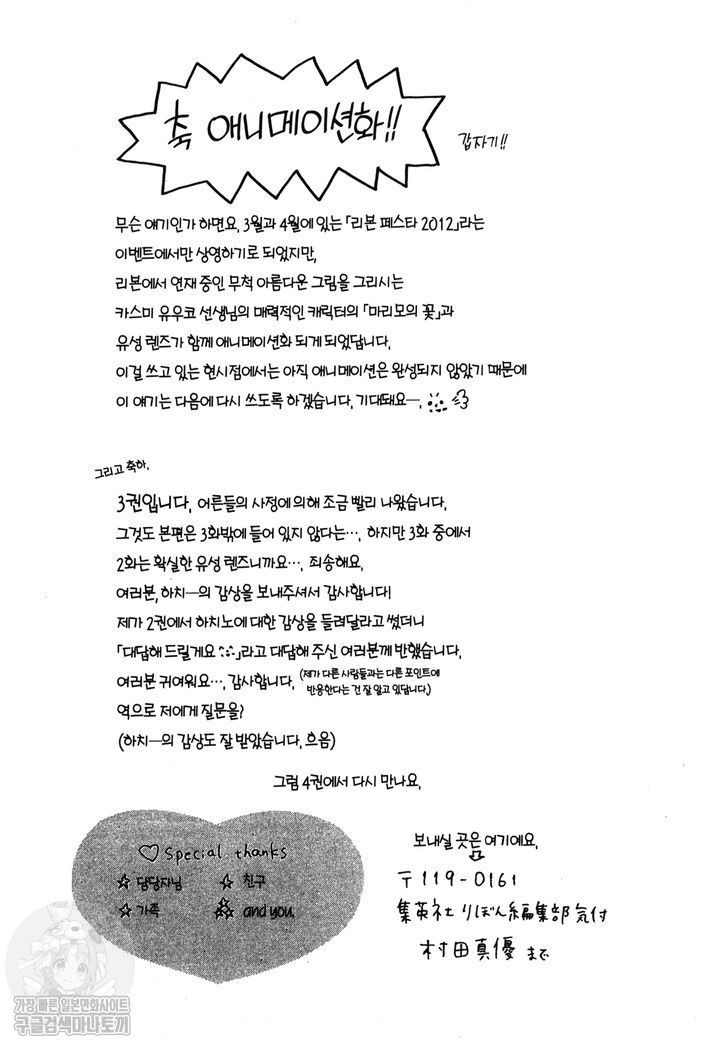 축 애니메이션화!!
갑자기!!
무슨 얘기인가 하면요, 3월과 4월에 있는 「리본 페스타 2012」라는
이벤트에서만 상영하기로 되었지만,
리본에서 연재 중인 무척 아름다운 그림을 그리시는
카스미 유우코 선생님의 매력적인 캐릭터의 「마리모의 꽃」과
유성 렌즈가 함께 애니메이션화 되게 되었답니다.
이걸 쓰고 있는 현시점에서는 아직 애니메이션은 완성되지 않았기 때문에
이 얘기는 다음에 다시 쓰도록 하겠습니다. 기대돼요―.
그리고 축하.
3권입니다. 어른들의 사정에 의해 조금 빨리 나왔습니다.
그것도 본편은 3화밖에 들어 있지 않다는…. 하지만 3화 중에서
2화는 확실한 유성 렌즈니까요…. 죄송해요.
여러분, 하치―의 감상을 보내주셔서 감사합니다!
제가 2권에서 하치노에 대한 감상을 들려달라고 썼더니
「대답해 드릴게요」라고 대답해 주신 여러분께 반했습니다.
여러분 귀여워요…. 감사합니다. (제가 다른 사람들과는 다른 포인트에
반응한다는 건 잘 알고 있답니다.)
역으로 저에게 질문을?
(하치―의 감상도 잘 받았습니다. 흐음)
그럼 4권에서 다시 만나요.
♡ Special thanks
☆ 담당자님 ☆ 친구
☆ 가족 and you.
보내실 곳은 여기예요.
〒119-0161
集英社 りぼん編集部 気付
村田真優 まで
가장 빠른 일본만화사이트
구글검색마나토끼